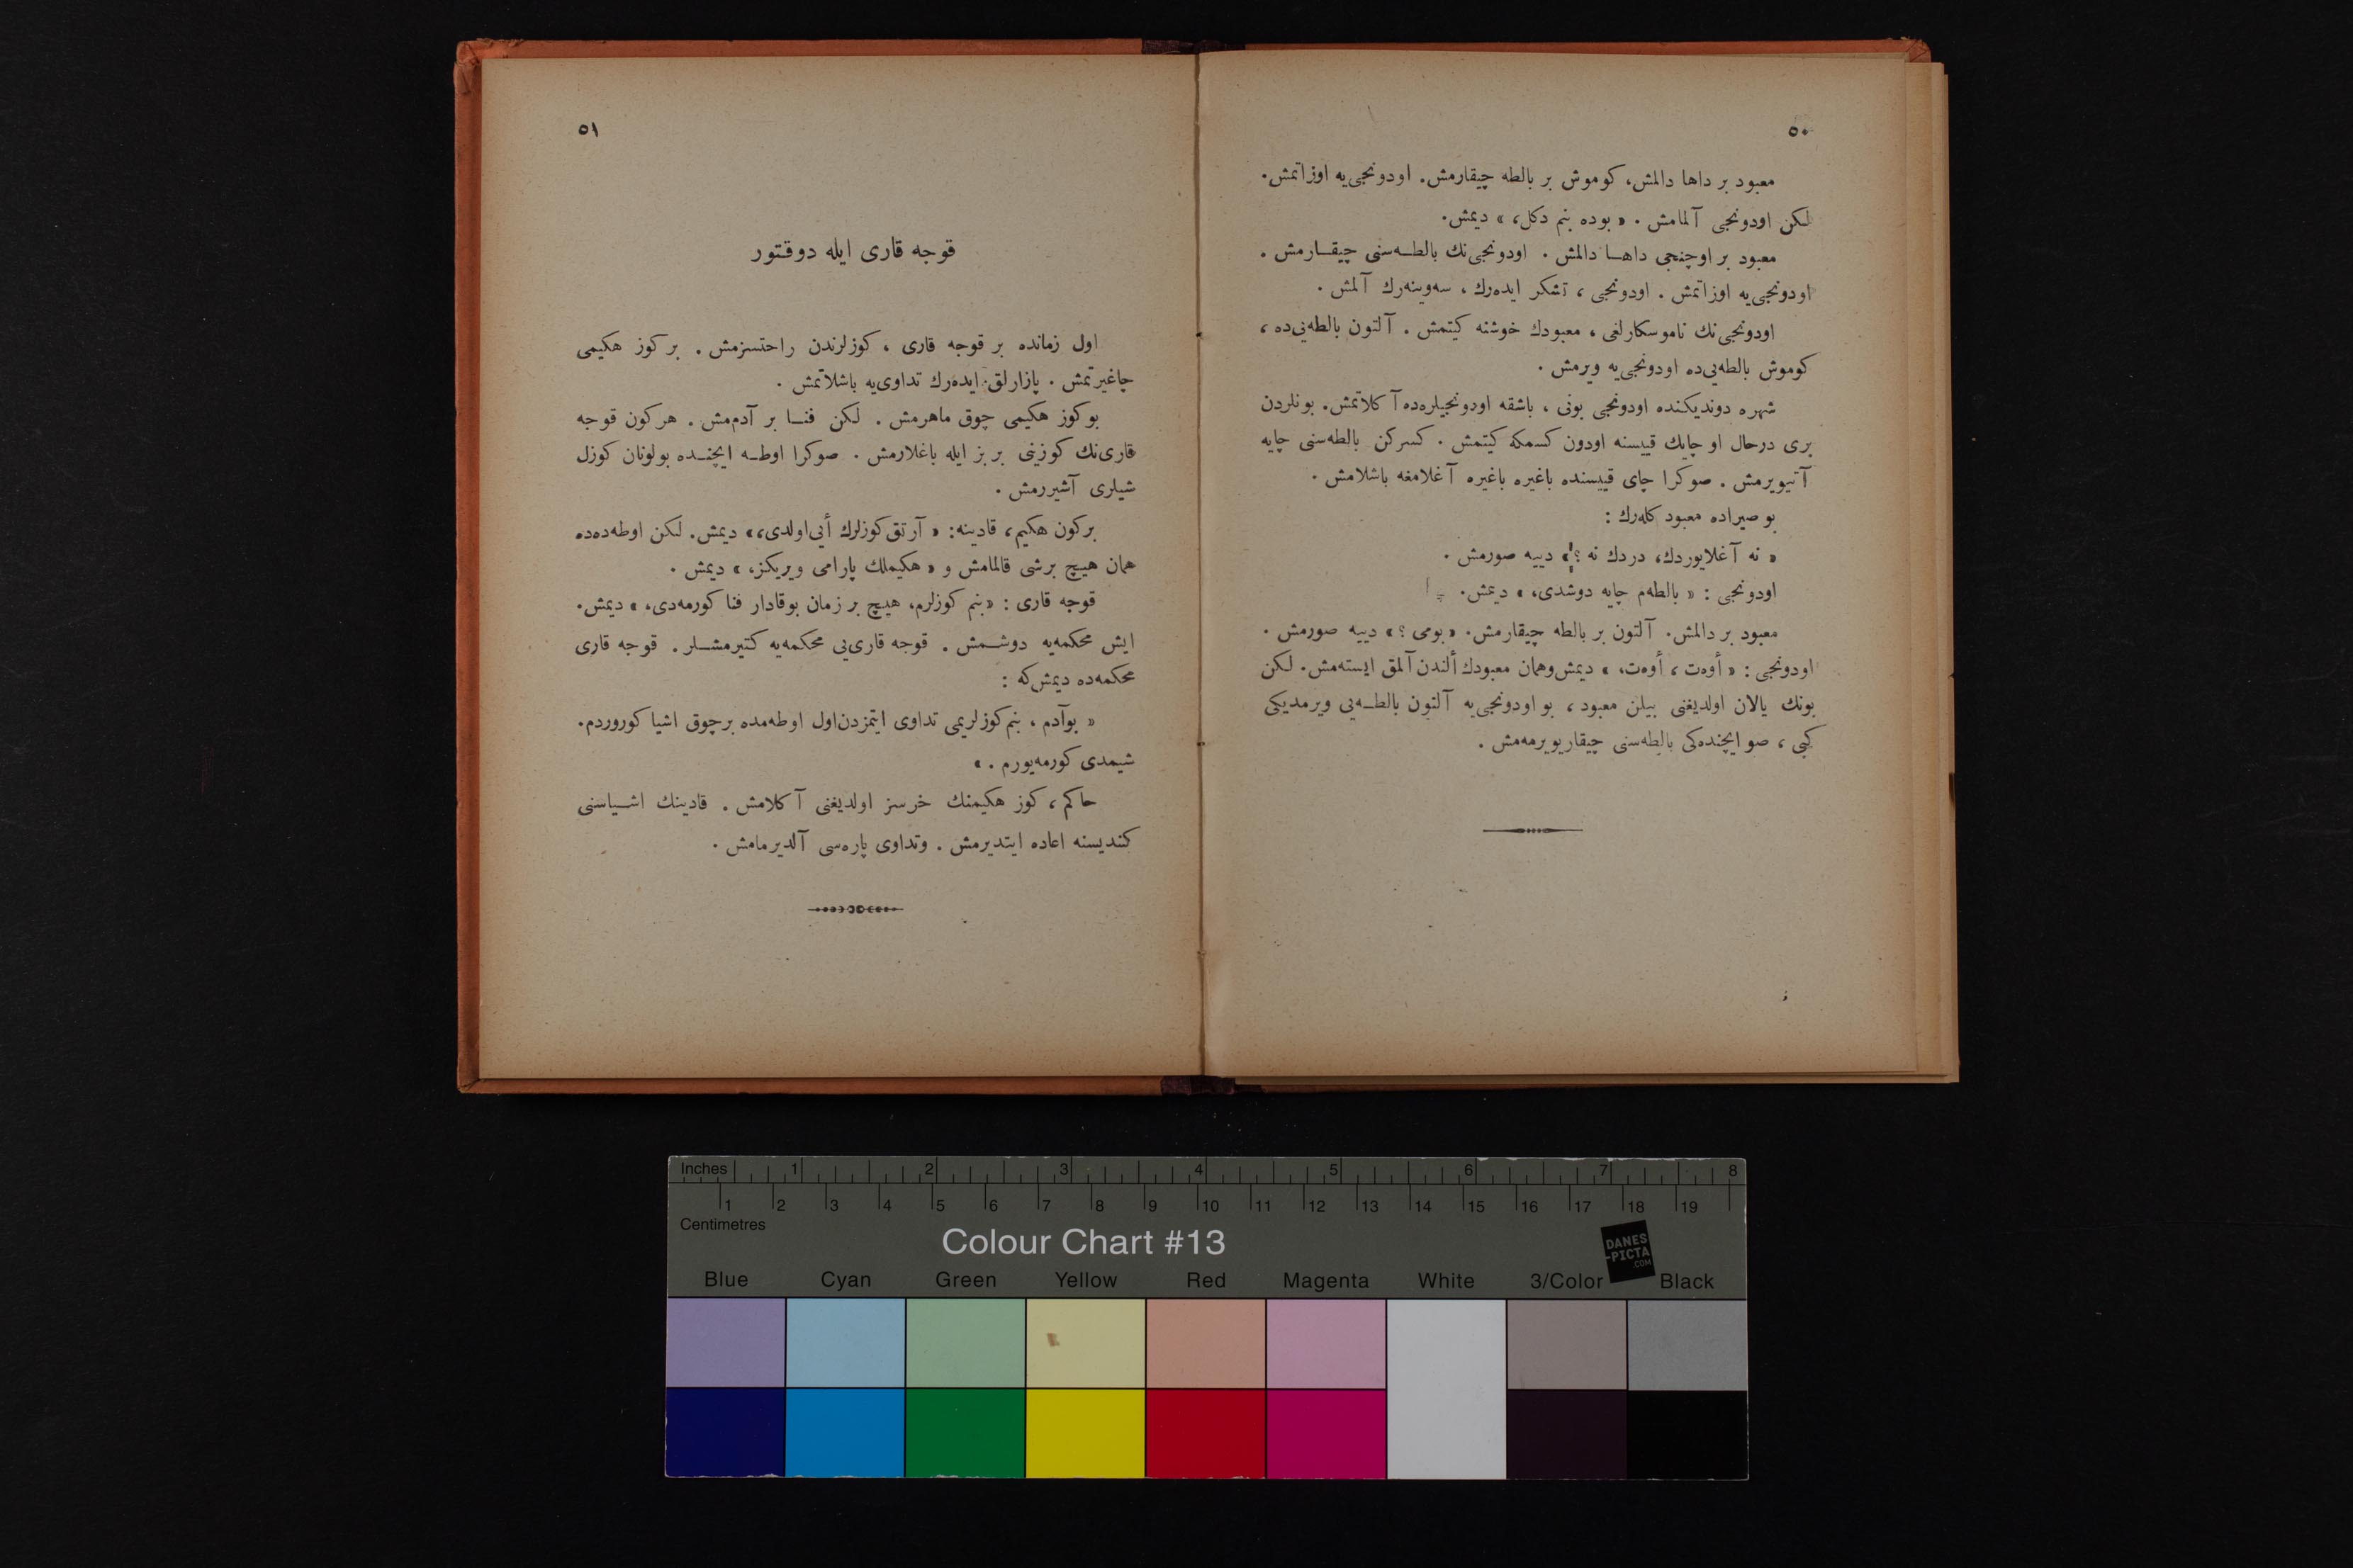 ٥٠
معبود بر داها دالمش، كوموش بر بالطه چيقارمش. اودونجی‌يه اوزاتمش.
لكن اودونجی آلمامش. « بوده بنم دكل، » ديمش.
معبود بر اوچنجی داهـا دالمش. اودونجی‌نك بالطـه‌سنی چيقـارمش.
اودونجی‌يه اوزاتمش. اودونجی، تشكر ايده‌رك، سه‌وينه‌رك آلمش.
اودونجی‌نك ناموسكارلغی، معبودك خوشنه كيتمش. آلتون بالطه‌يی‌ده،
كوموش بالطه‌يی‌ده اودونجی‌يه ويرمش.
شهره دونديكنده اودونجی بونی، باشقه اودونجيلره‌ده آكلاتمش. بونلردن
بری درحال او چايك قييسنه اودون كسمكه كيتمش. كسركن بالطه‌سنی چايه
آتيويرمش. صوكرا چای قييسنده باغيره باغيره آغلامغه باشلامش.
بو صيراده معبود كله‌رك:
« نه آغلايوردك، دردك نه؟ » دييه صورمش.
اودونجی: « بالطه‌م چايه دوشدی، » ديمش.
معبود بر دالمش. آلتون بر بالطه چيقارمش. « بومی؟ » دييه صورمش.
اودونجی: « أوه‌ت، أوه‌ت، » ديمش‌وهمان معبودك ألندن آلمق ايسته‌مش. لكن
بونك يالان اولديغنی بيلن معبود، بو اودونجی‌يه آلتون بالطـه‌يی ويرمديكی
كبی، صو ايچنده‌كی بالطه‌سنی چيقاريويرمه‌مش.
٥١
قوجه قاری ايله دوقتور
اول زمانده بر قوجه قاری، كوزلرندن راحتسزمش. بر كوز هكيمی
چاغيرتمش. پازارلق ايده‌رك تداوی‌يه باشلاتمش.
بو كوز هكيمی چوق ماهرمش. لكن فنـا بر آدم‌مش. هر كون قوجه
قاری‌نك كوزينی بر بز ايله باغلارمش. صوكرا اوطـه ايچنـده بولونان كوزل
شيلری آشيررمش.
بركون هكيم، قادينه: « آرتق كوزلرك أيی‌اولدی، » ديمش. لكن اوطه‌ده‌ده
همان هيچ برشی قالمامش و « هكيملك پارامی ويريكز، » ديمش.
قوجه قاری: « بنم كوزلرم، هيچ بر زمان بوقادار فنا كورمه‌دی، » ديمش.
ايش محكمه‌يه دوشـمش. قوجه قاری‌يی محكمه‌يه كتيرمشـلر. قوجه قاری
محكمه‌ده ديمش‌كه:
« بوآدم، بنم كوزلريمی تداوی ايتمزدن‌اول اوطه‌مده برچوق اشيا كوروردم.
شيمدی كورمه‌يورم. »
حاكم، كوز هكيمنك خرسز اولديغنی آكلامش. قادينك اشـياسنی
كنديسنه اعاده ايتديرمش. وتداوی پاره‌سی آلديرمامش.
Inches 1 2 3 4 5 6 7 8
1 2 3 4 5 6 7 8 9 10 11 12 13 14 15 16 17 18 19
Centimetres
Colour Chart #13
DANES
-PICTA
.COM
Blue Cyan Green Yellow Red Magenta White 3/Color Black